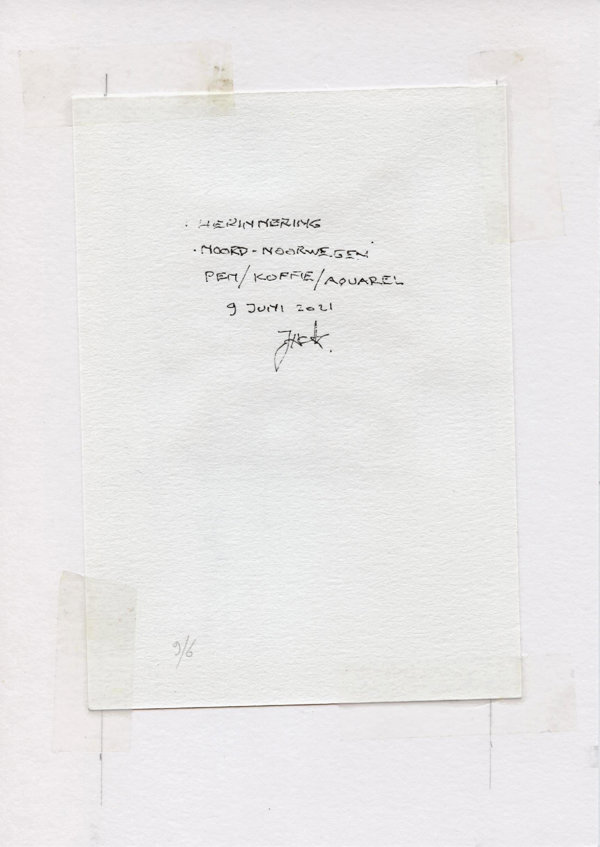 . HERINNERING
. NOORD-NOORWEGEN
PEN/KOFFIE/AQUAREL
9 JUNI 2021
9/6